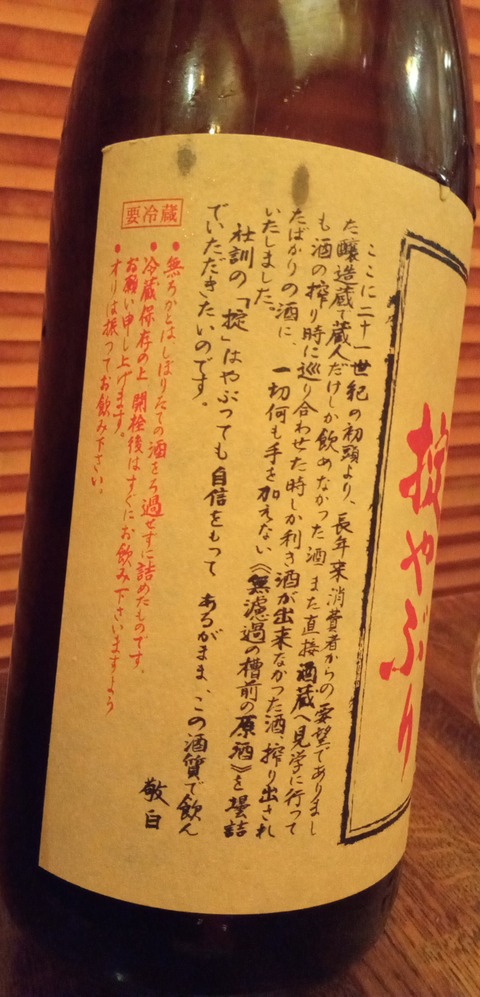 掟やぶり
ここに二十一世紀の初頭より、長年来消費者からの要望でありまし
た醸造蔵で蔵人だけしか飲めなかった酒また直接酒蔵へ見学に行って
も酒の搾り時に巡り合わせた時しか利き酒が出来なかった酒、搾り出され
たばかりの酒に、一切何も手を加えない《無濾過の槽前の原酒》を壜詰
いたしました。
社訓の「掟」はやぶっても自信をもって あるがまま、この酒質で飲ん
でいただきたいのです。
敬白
要冷蔵
●無ろかとはしぼりたての酒をろ過せずに詰めたものです。
●冷蔵保存の上 開栓後はすぐにお飲み下さいますよう
お願い申し上げます。
●オリは振ってお飲み下さい。